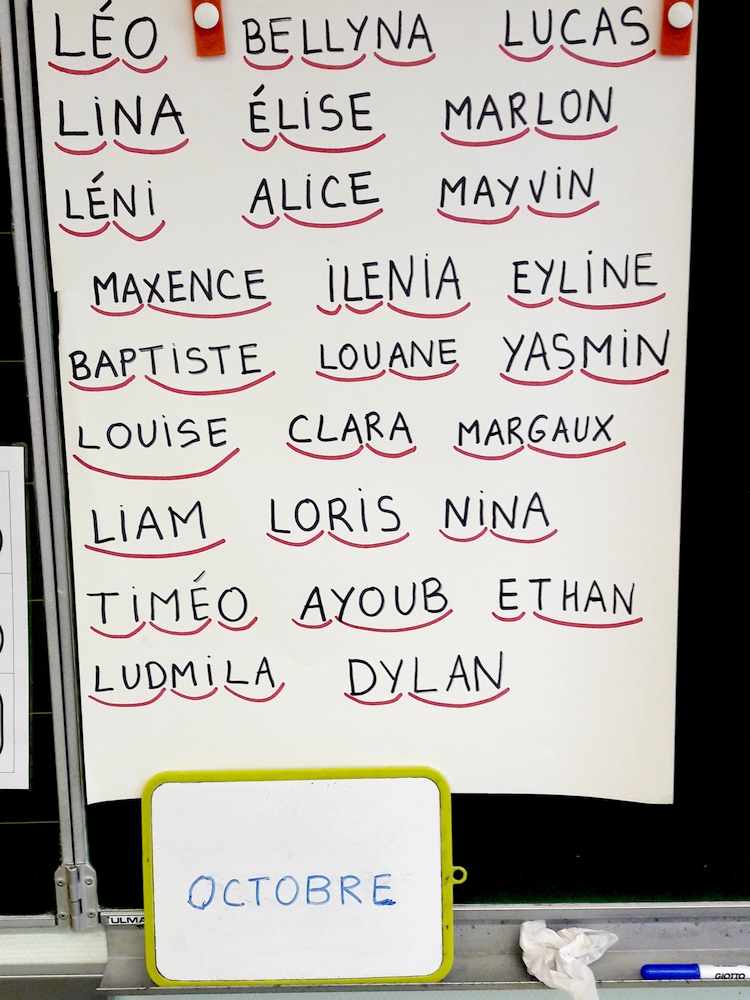 LÉO BELLYNA LUCAS
LiNA ÉLiSE MARLON
LÉNi ALiCE MAYViN
MAXENCE iLENiA EYLiNE
BAPTiSTE LOUANE YASMiN
LOUiSE CLARA MARGAUX
LiAM LORiS NiNA
TiMÉO AYOUB ETHAN
LUDMiLA DYLAN
OCTOBRE
ULMA
GIOTTO